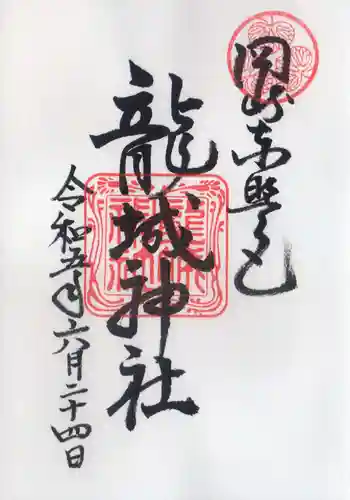 岡崎東照宮
龍城神社
令和五年六月二十四日